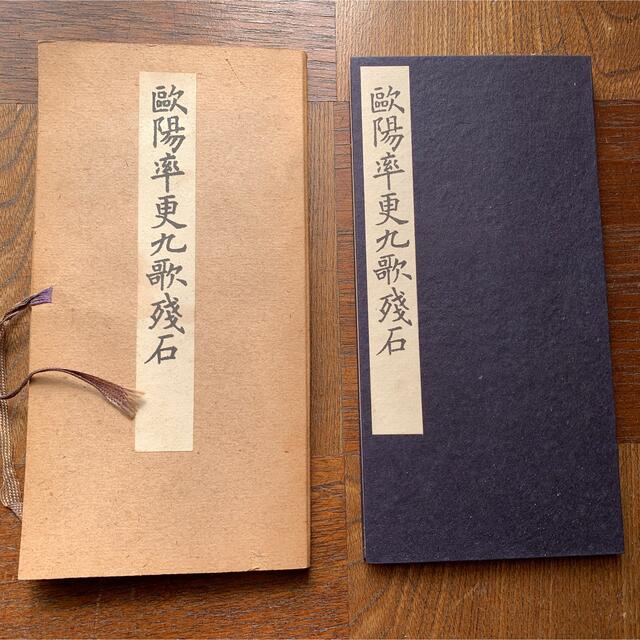 歐陽率更九歌殘石
歐陽率更九歌殘石